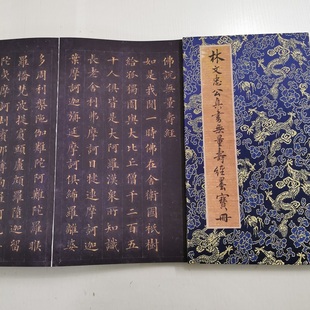 林文忠公真書無量壽經墨寶冊
佛說無量壽經
如是我聞一時佛在舍衛國祇樹
給孤獨園與大比丘僧千二百五
十人俱皆是大阿羅漢衆所知識
長老舍利弗摩訶目犍連摩訶迦
葉摩訶迦旃延摩訶俱絺羅離婆
多周利槃陀伽難陀阿難陀羅睺
羅憍梵波提賓頭盧頗羅墮迦留
陀夷摩訶劫賓